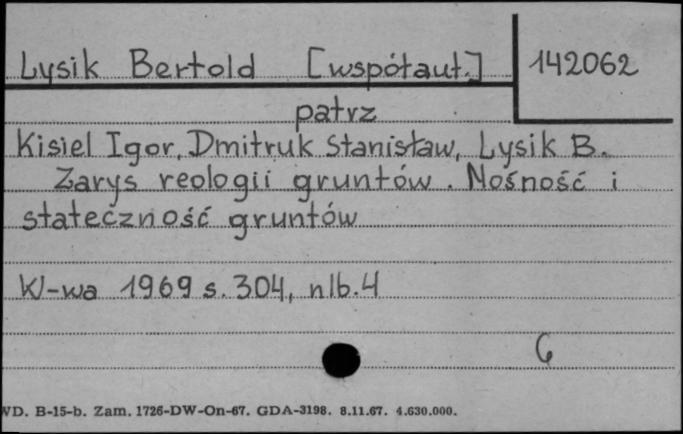 Lysik Bertold [współaut.] 142062
patrz
Kisiel Igor, Dmitruk Stanisław, Lysik B.
Zarys reologii gruntów. Nośność i
stateczność gruntów
W-wa 1969 s. 304, nlb. 4
6
WD. B-15-b. Zam. 1726-DW-On-67. GDA-3198. 8.11.67. 4.630.000.